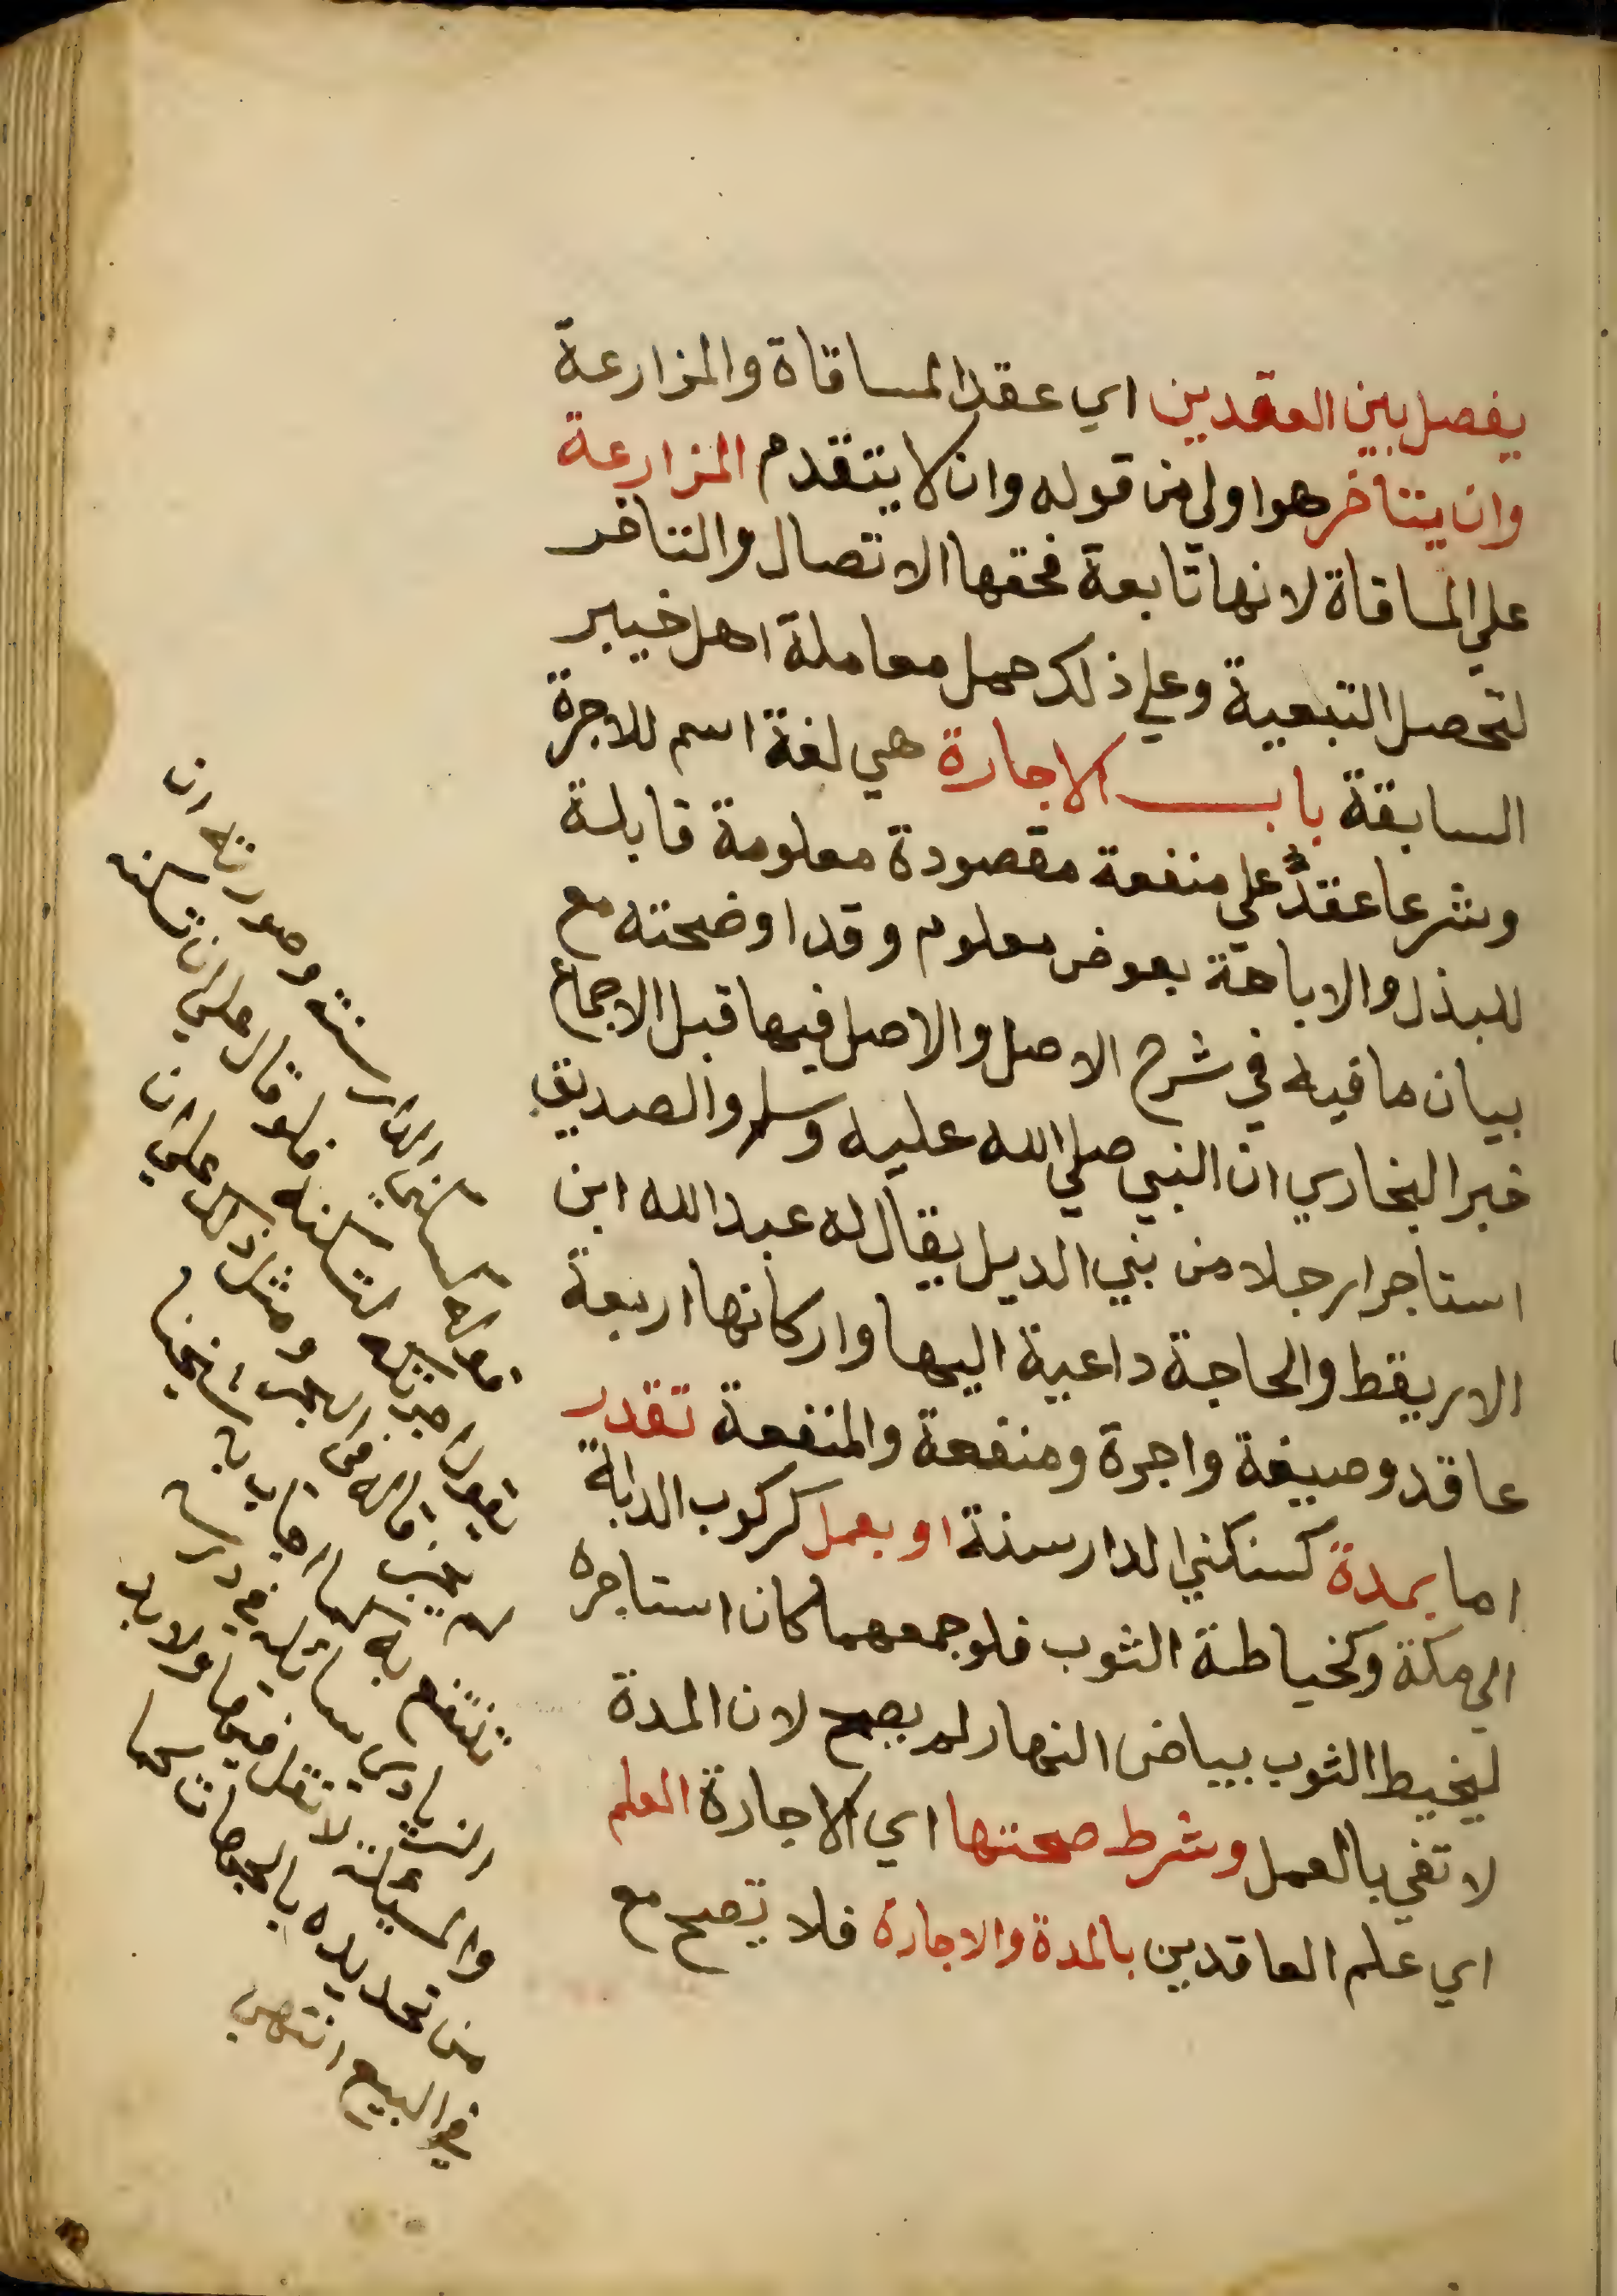 يفصل بين العقدين اي عقد المساقاة والمزارعة
وان يتاخر هو اولي من قوله وان لا يتقدم المزارعة
علي المساقاة لانها تابعة فحقها الاتصال والتاخر
لتحصل التبعية وعلي ذلك حمل معاملة اهل خيبر
السابقة باب الاجارة هي لغة اسم للاجرة
وشرعا عقد علي منفعة مقصودة معلومة قابلة
للبذل والاباحة بعوض معلوم وقد اوضحته مع
بيان ما فيه في شرح الاصل والاصل فيها قبل الاجماع
خبر البخاري ان النبي صلي الله عليه وسلم والصديق
استاجرا رجلا من بني الديل يقال له عبد الله ابن
الاريقط والحاجة داعية اليها واركانها اربعة
عاقد وصيغة واجرة ومنفعة والمنفعة تقدر
اما بمدة كسكني الدار سنة او بعمل كركوب الدابة
الي مكة وكخياطة الثوب فلو جمعهما كان استاجره
ليخيط الثوب ببياض النهار لم يصح لان المدة
لا تفي بالعمل وشرط صحتها اي الاجارة العلم
اي علم العاقدين بالمدة والاجارة فلا تصح مع
قوله كسكني الدار سنة وصورته ان
يقول اجرتكه لتسكنه فلو قال علي ان تسكنه
لم يجز قاله في البحر ومثل ذلك علي ان
تنتفع به
والمسئلة لا نقل فيها ولا بد
من تحديده بالجهات كما
في البيع انتهي